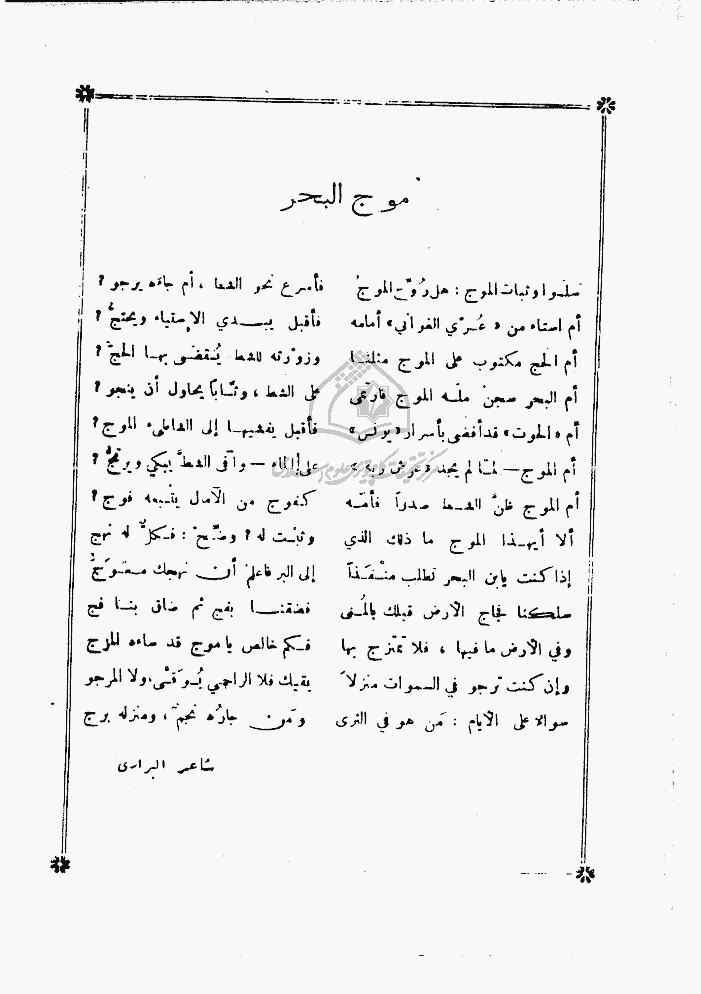 موج البحر
سلوا وثبات الموج : هل رُوّع الموجُ فأسرع نحو الشط ، أم جاءَه يرجو ؟
أم استاء من « عُرْي الغواني » أمامه فأقبل يبدي الإستياء ويحتجُّ ؟
أم الحج مكتوب على الموج مثلنا وزورته للشط يُقضى بها الحجُّ ؟
أم البحر سجنٌ ملّه الموج فارتمى على الشط ، وثّاباً يحاول أن ينجو ؟
أم « الحوت » قد أفضى بأسرار « يونس » فأقبل يفشيها إلى الشاطىء الموج ؟
أم الموج — لمّا لم يجد « عرش ربه » على الماء — وافى الشطَّ يبكي ويرتجُّ ؟
أم الموج ظنَّ الشط صدراً فأمّه كفوج من الآمال يتبعه فوج ؟
ألا أيهذا الموج ما ذلك الذي وثبت له ؟ وضّحْ : فكلٌّ له نهج
إذا كنت يابن البحر تطلب منفذاً إلى البر فاعلم أن نهجك معوَجُّ
سلكنا فجاج الأرض قبلك بالمُنى فضقنا بفج ثم ضاق بنا فج
وفي الأرض ما فيها ، فلا تمتزج بها فكم خالص يا موج قد ساءه المزج
وإن كنت ترجو في السموات منزلاً يقيك فلا الراجي يُوَقّى ، ولا المرجو
سواء على الأيام : مَن هو في الثرى ومَن جارُه نجمٌ ، ومنزله برج
شاعر البرارى